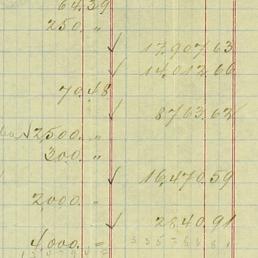 64.39
250. "
√ 17.907.63
√ 14.012.66
70.48
√ 8763.62
√2500. "
300. "
√ 16.470.59
2000. "
√ 2840.91
4000. =